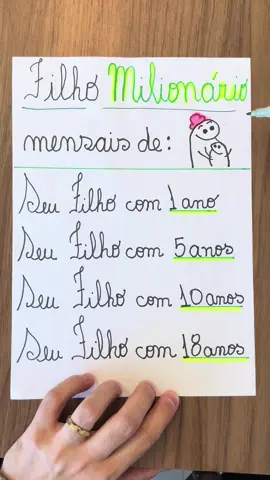 Filho Milionário
mensais de:
Seu Filho com 1 ano
Seu Filho com 5 anos
Seu Filho com 10 anos
Seu Filho com 18 anos